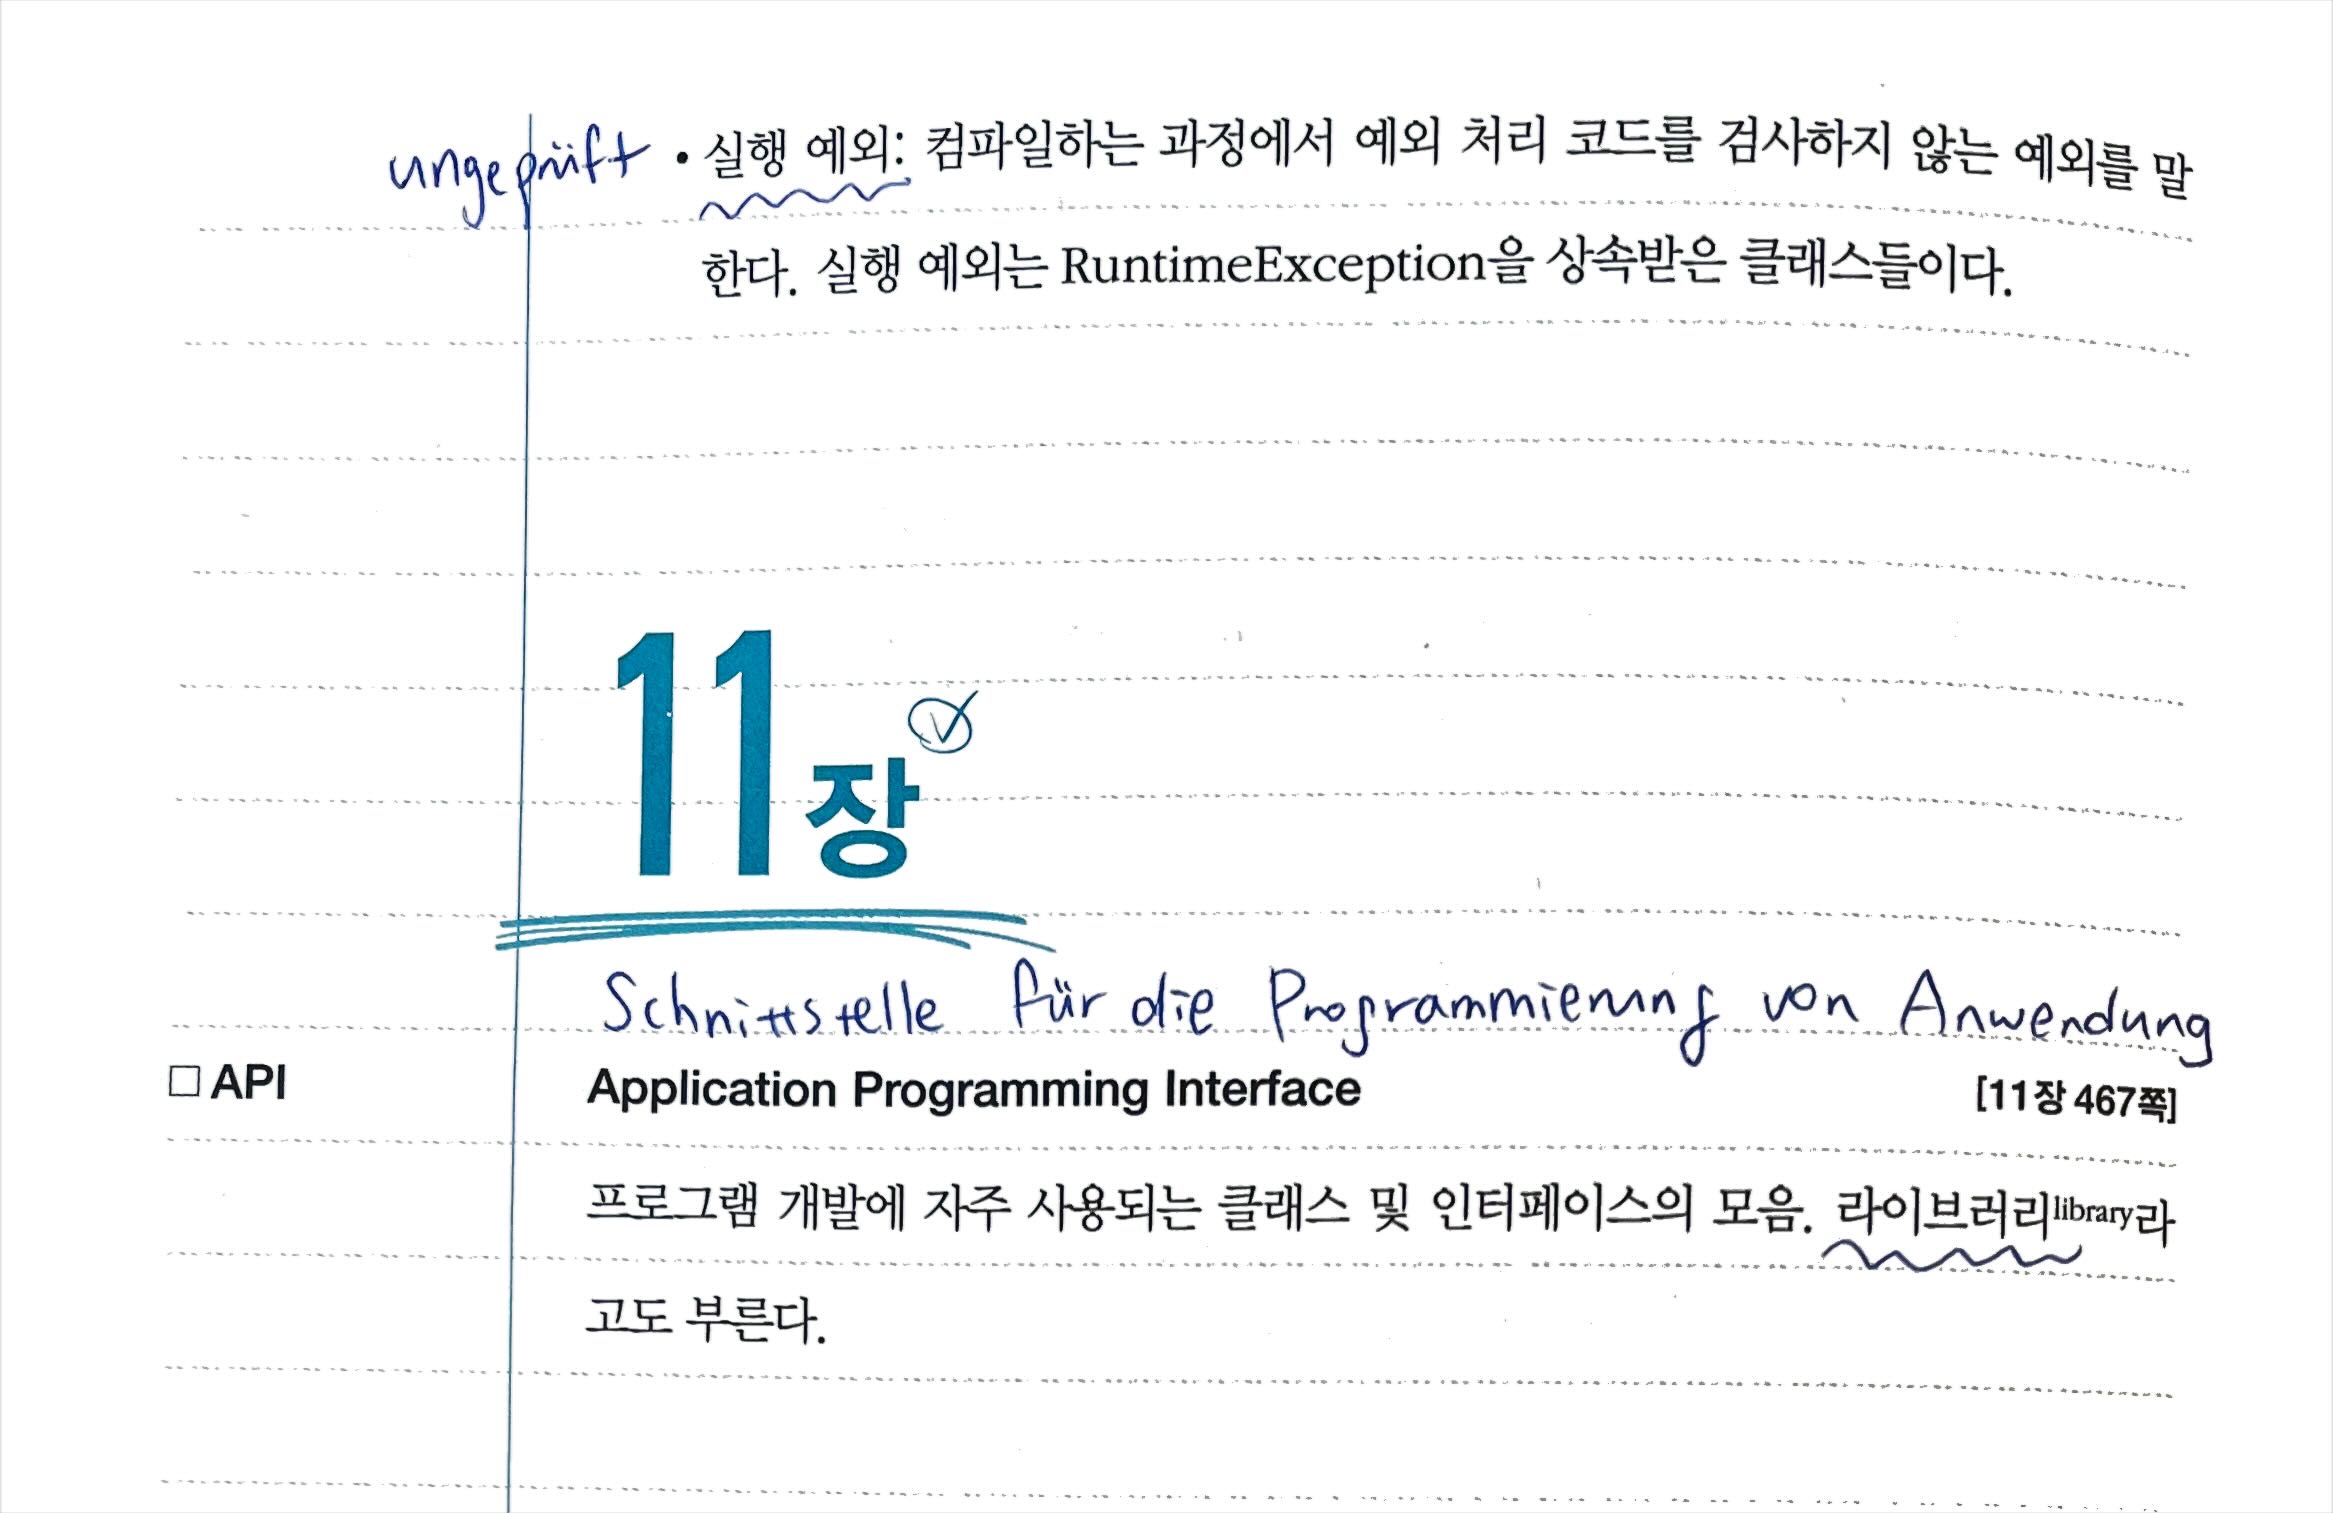 ungeprüft • 실행 예외: 컴파일하는 과정에서 예외 처리 코드를 검사하지 않는 예외를 말
한다. 실행 예외는 RuntimeException을 상속받은 클래스들이다.
11장
Schnittstelle für die Programmierung von Anwendung
□ API Application Programming Interface [11장 467쪽]
프로그램 개발에 자주 사용되는 클래스 및 인터페이스의 모음. 라이브러리library라
고도 부른다.